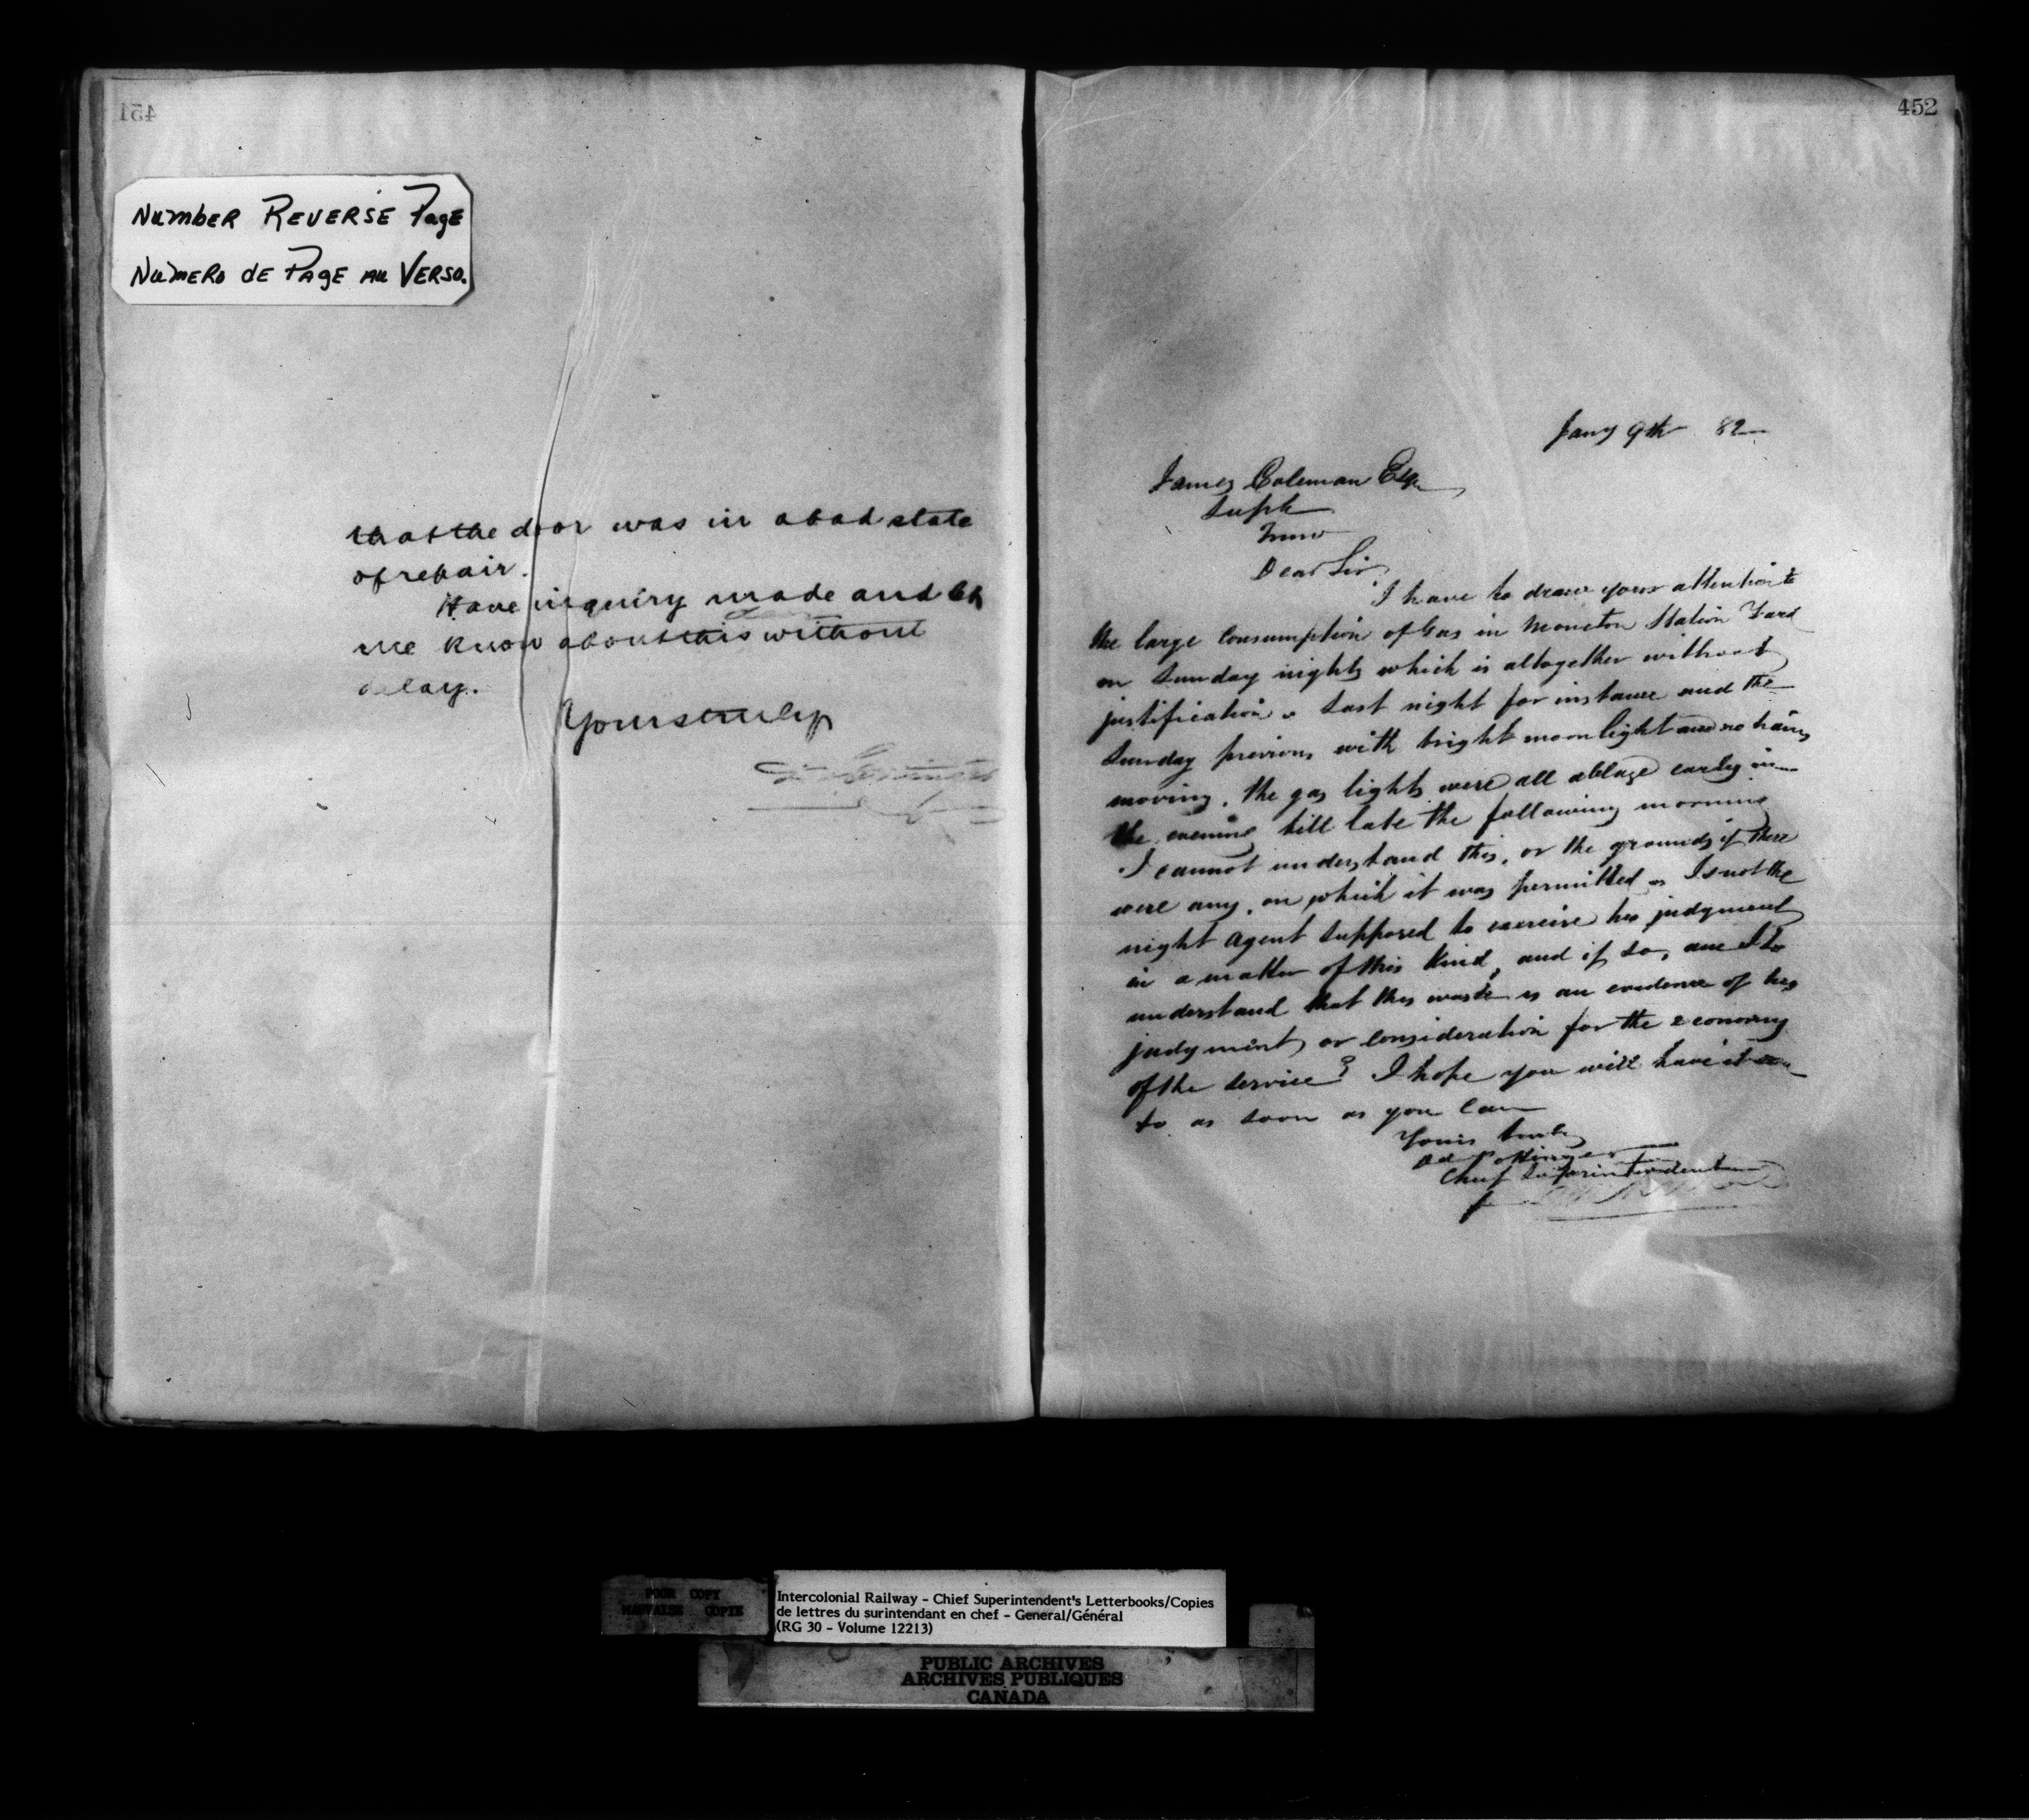 451
NUMBER REVERSE PAGE
NUMERO DE PAGE AU VERSO.
that the door was in a bad state
of repair.
Have inquiry made and let
me know about this without
delay.
Yours truly
452
Jany 9th 82
James Coleman Esq
Supt
Truro
Dear Sir,
I have to draw your attention to
the large consumption of Gas in Moncton Station Yard
on Sunday nights which is altogether without
justification. Last night for instance and the
Sunday previous, with bright moonlight and no trains
moving, the gas lights were all ablaze early in
the evening till late the following morning
I cannot understand this, or the grounds if there
were any, on which it was permitted. Is not the
night agent supposed to exercise his judgment
in a matter of this kind, and if so, am I to
understand that this waste is an evidence of his
judgment or consideration for the economy
of the service? I hope you will have it seen
to as soon as you can
Yours truly
D Pottinger
Chief Superintendent
POOR COPY
MAUVAISE COPIE
Intercolonial Railway - Chief Superintendent's Letterbooks/Copies
de lettres du surintendant en chef - General/Général
(RG 30 - Volume 12213)
PUBLIC ARCHIVES
ARCHIVES PUBLIQUES
CANADA